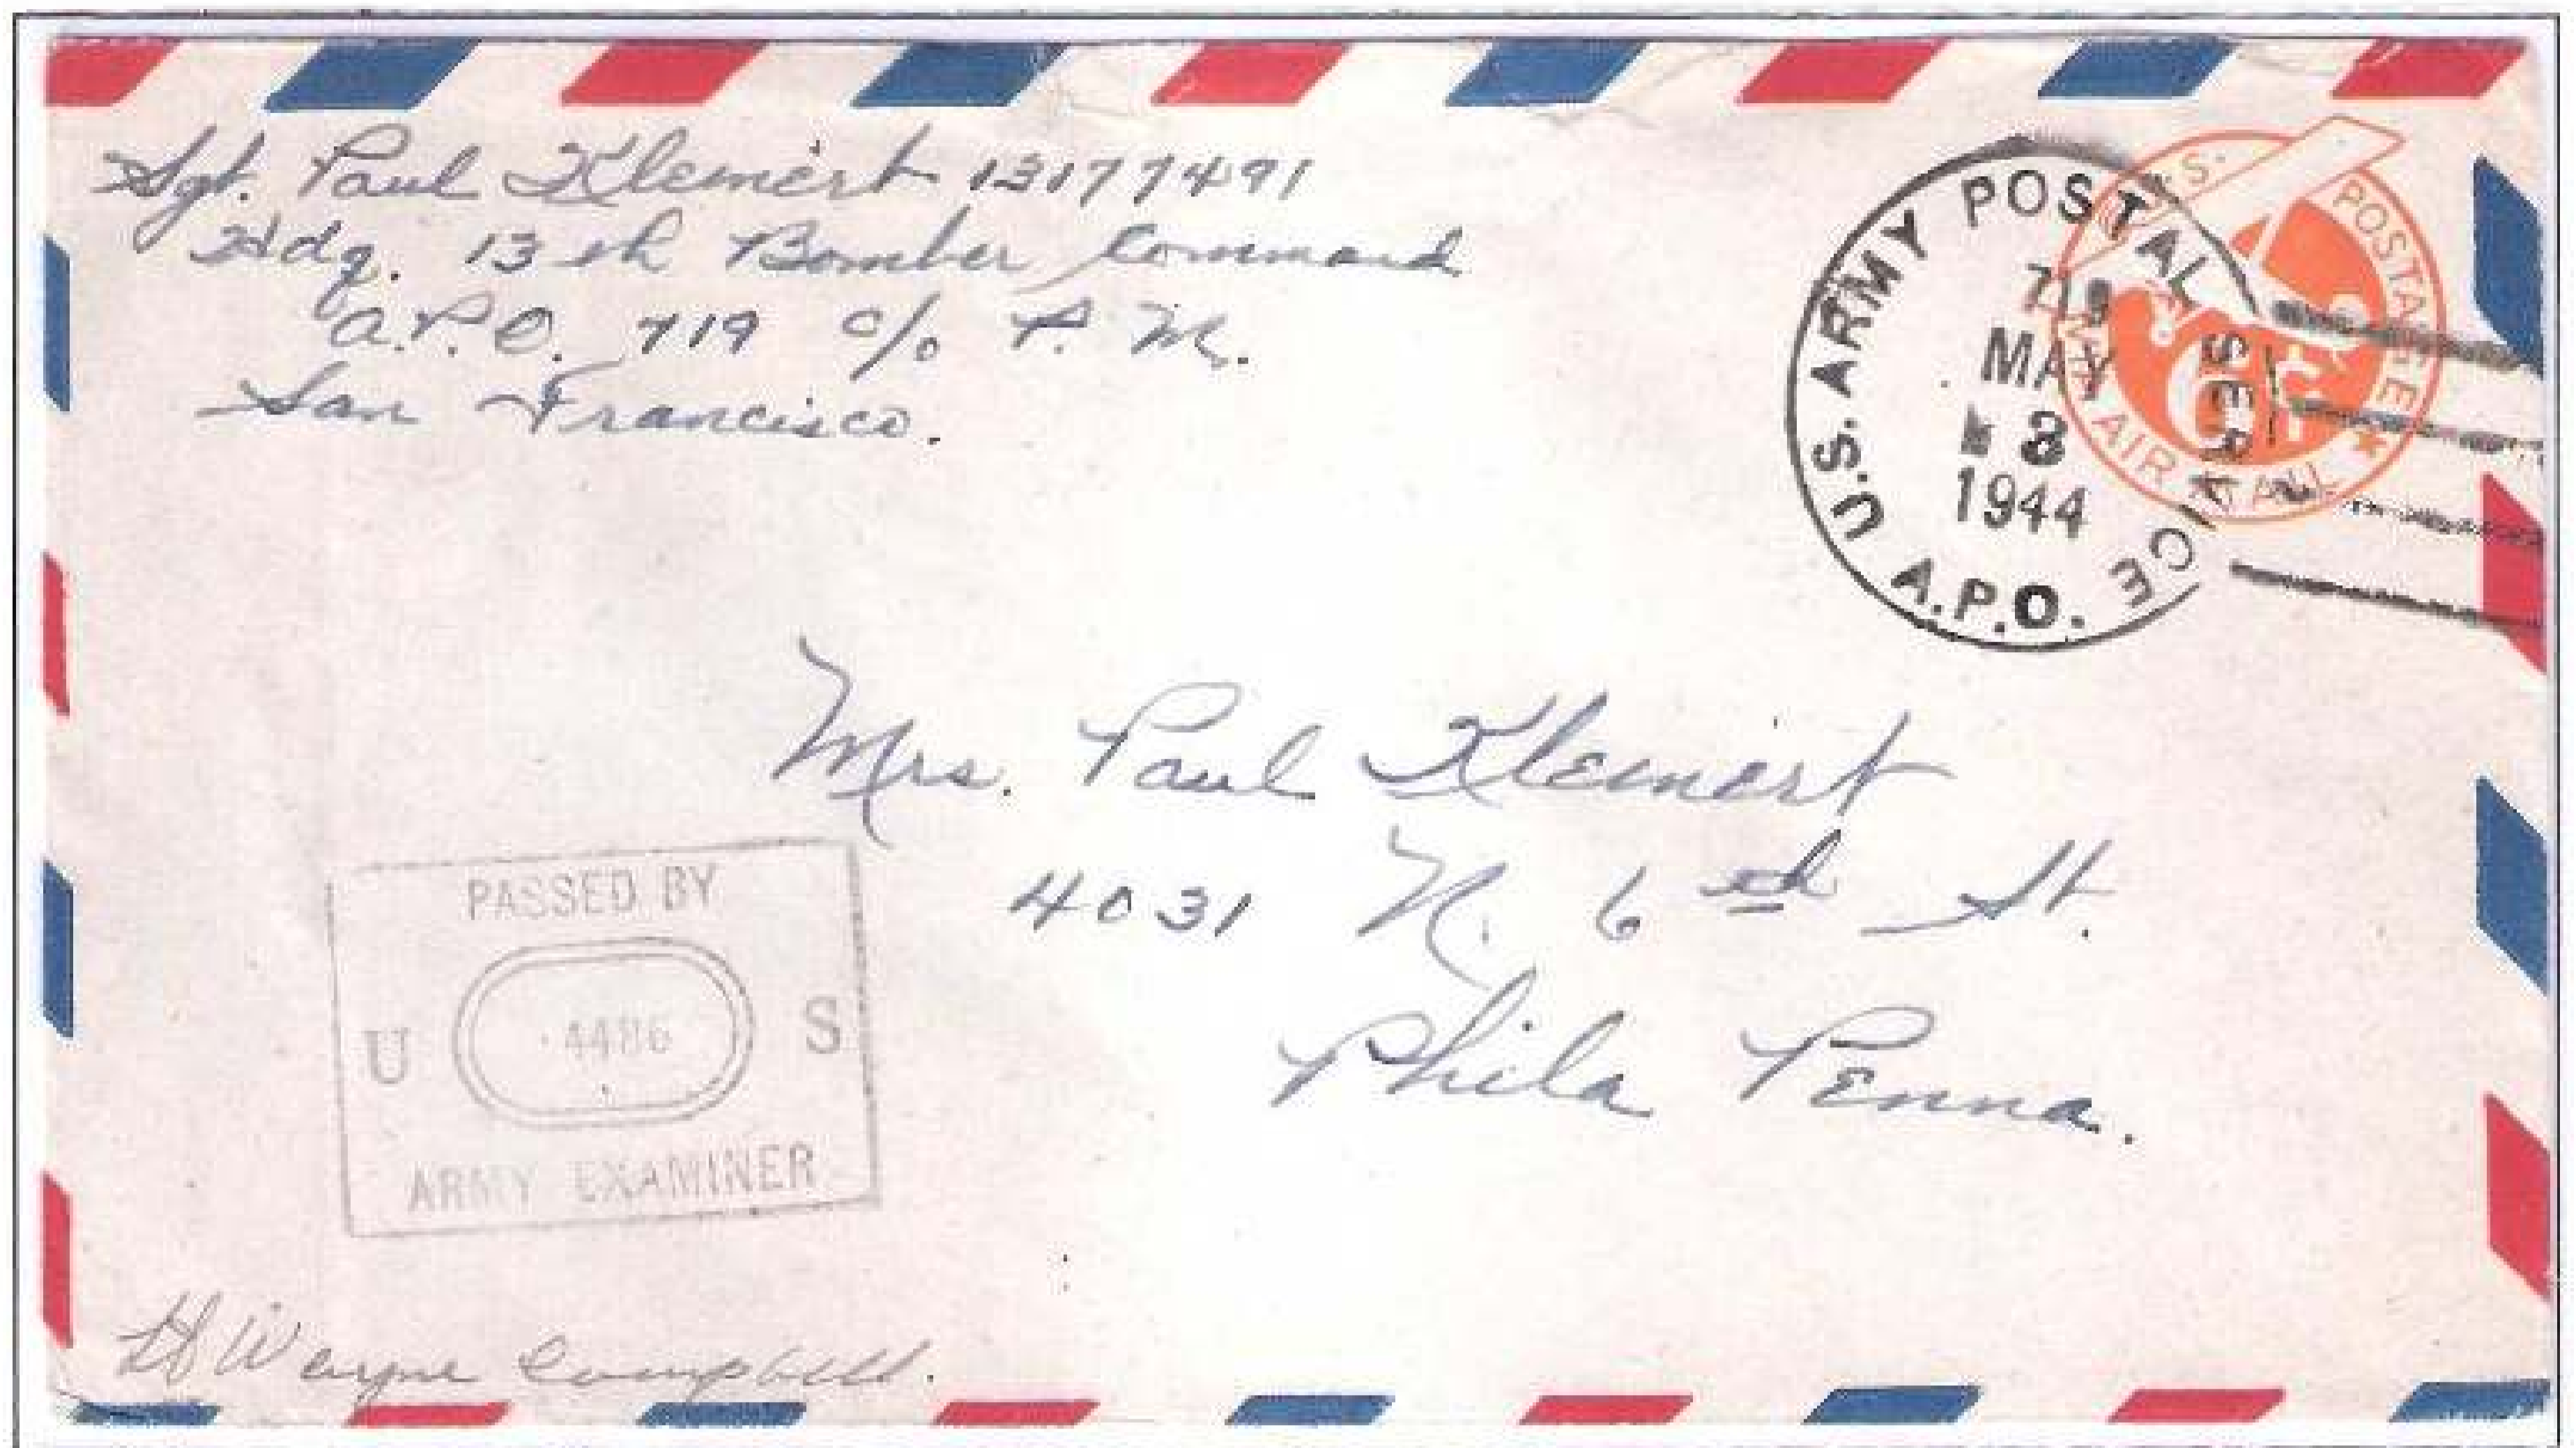 Sgt. Paul Kleinert 13177491
Hdq. 13th Bomber Command
A.P.O. 719 c/o P.M.
San Francisco.
U.S. ARMY POSTAL SERVICE
MAY
3
1944
A.P.O.
U.S. POSTAGE
6c
AIR MAIL
Mrs. Paul Kleinert
4031 N. 6th St.
Phila Penna.
PASSED BY
U 4486 S
ARMY EXAMINER
Lt Wayne Campbell.